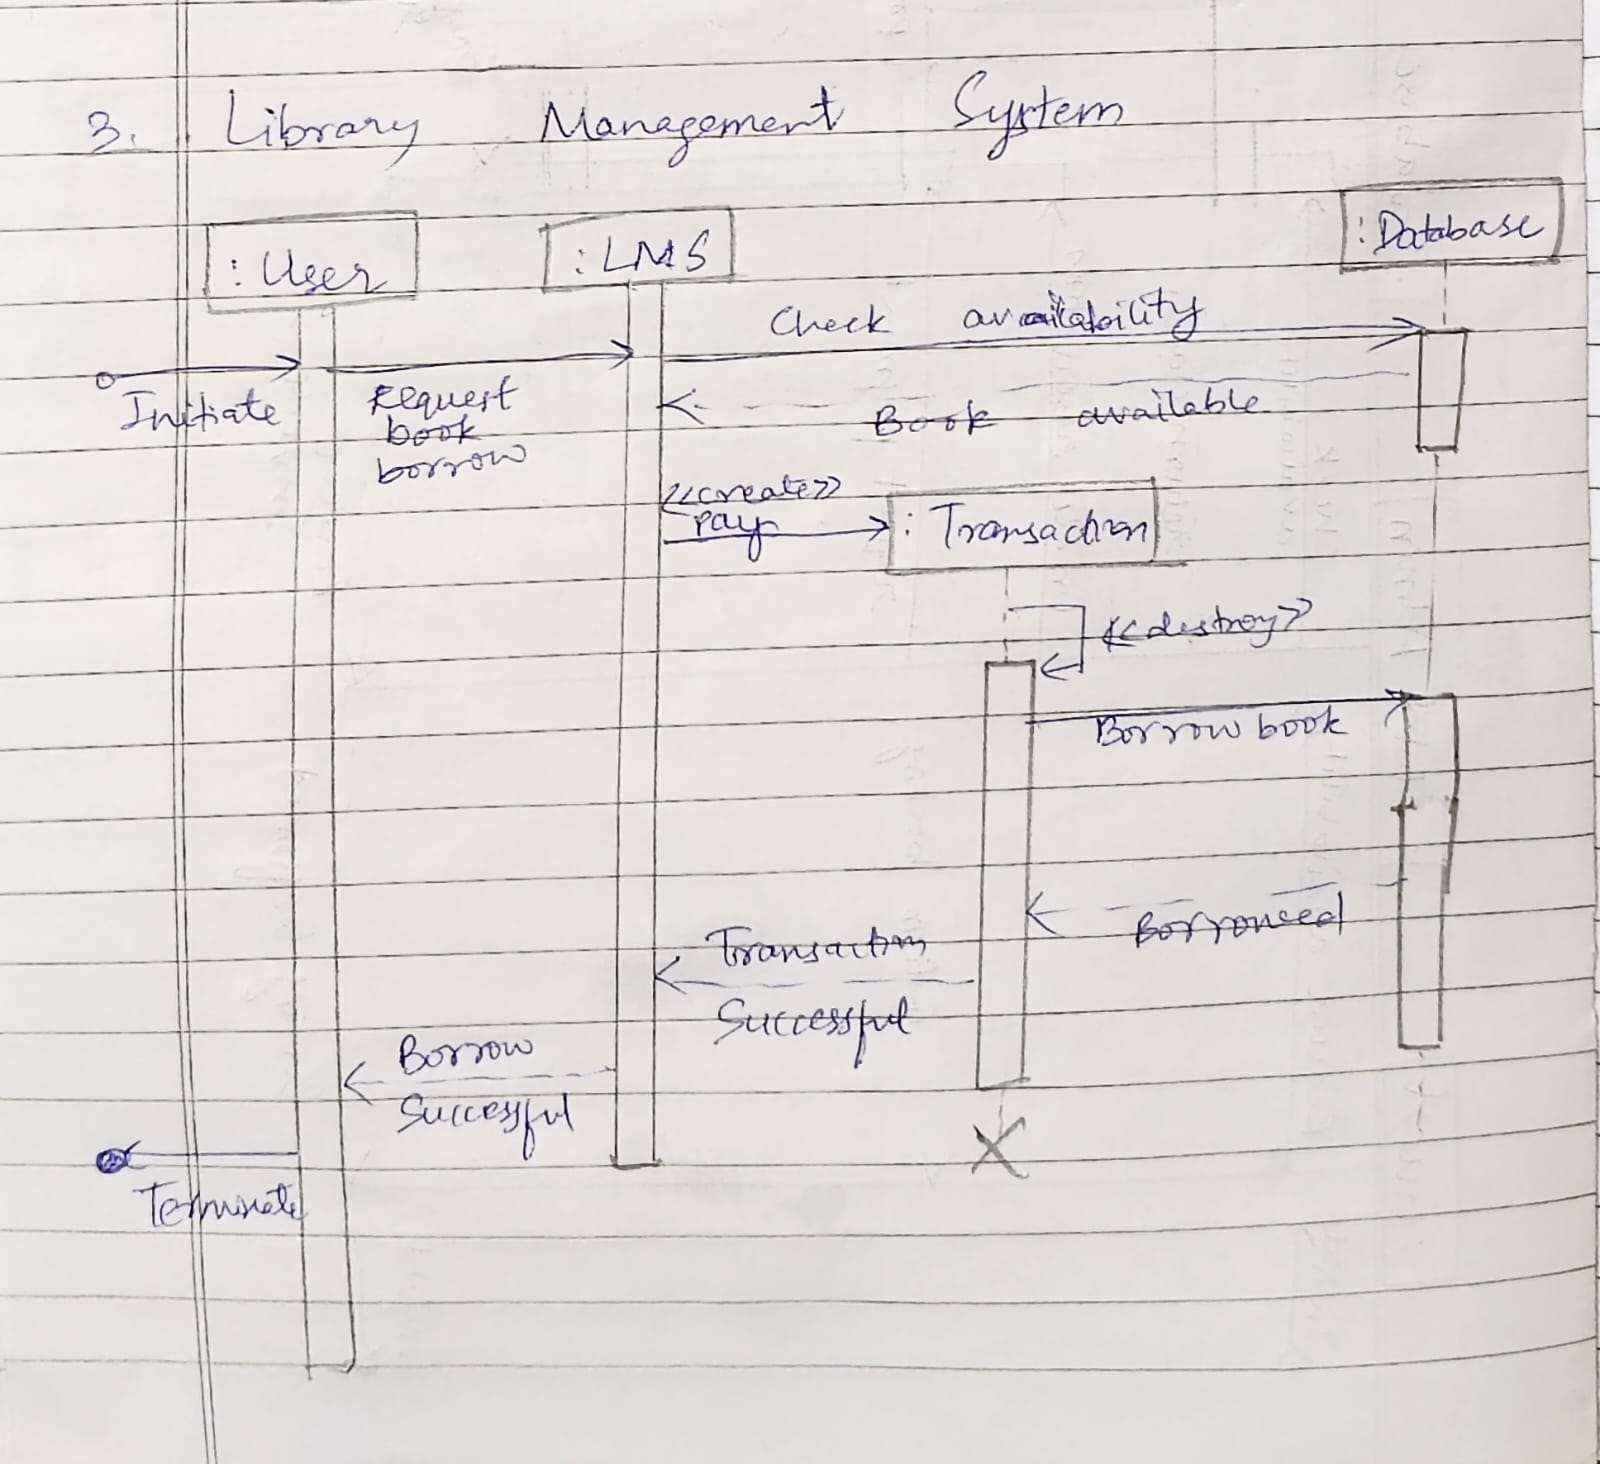 3. Library Management System
:User
:LMS
:Database
Check availability
Initiate
Request
book
borrow
Book available
<<create>>
pay
:Transaction
<<destroy>>
Borrow book
Borrowed
Transaction
Successful
Borrow
Successful
Terminate